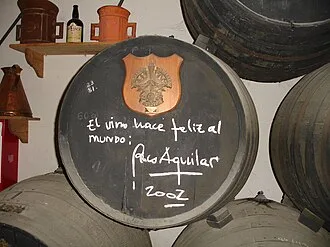 El vino hace feliz al
mundo;
Paco Aguilar
2002